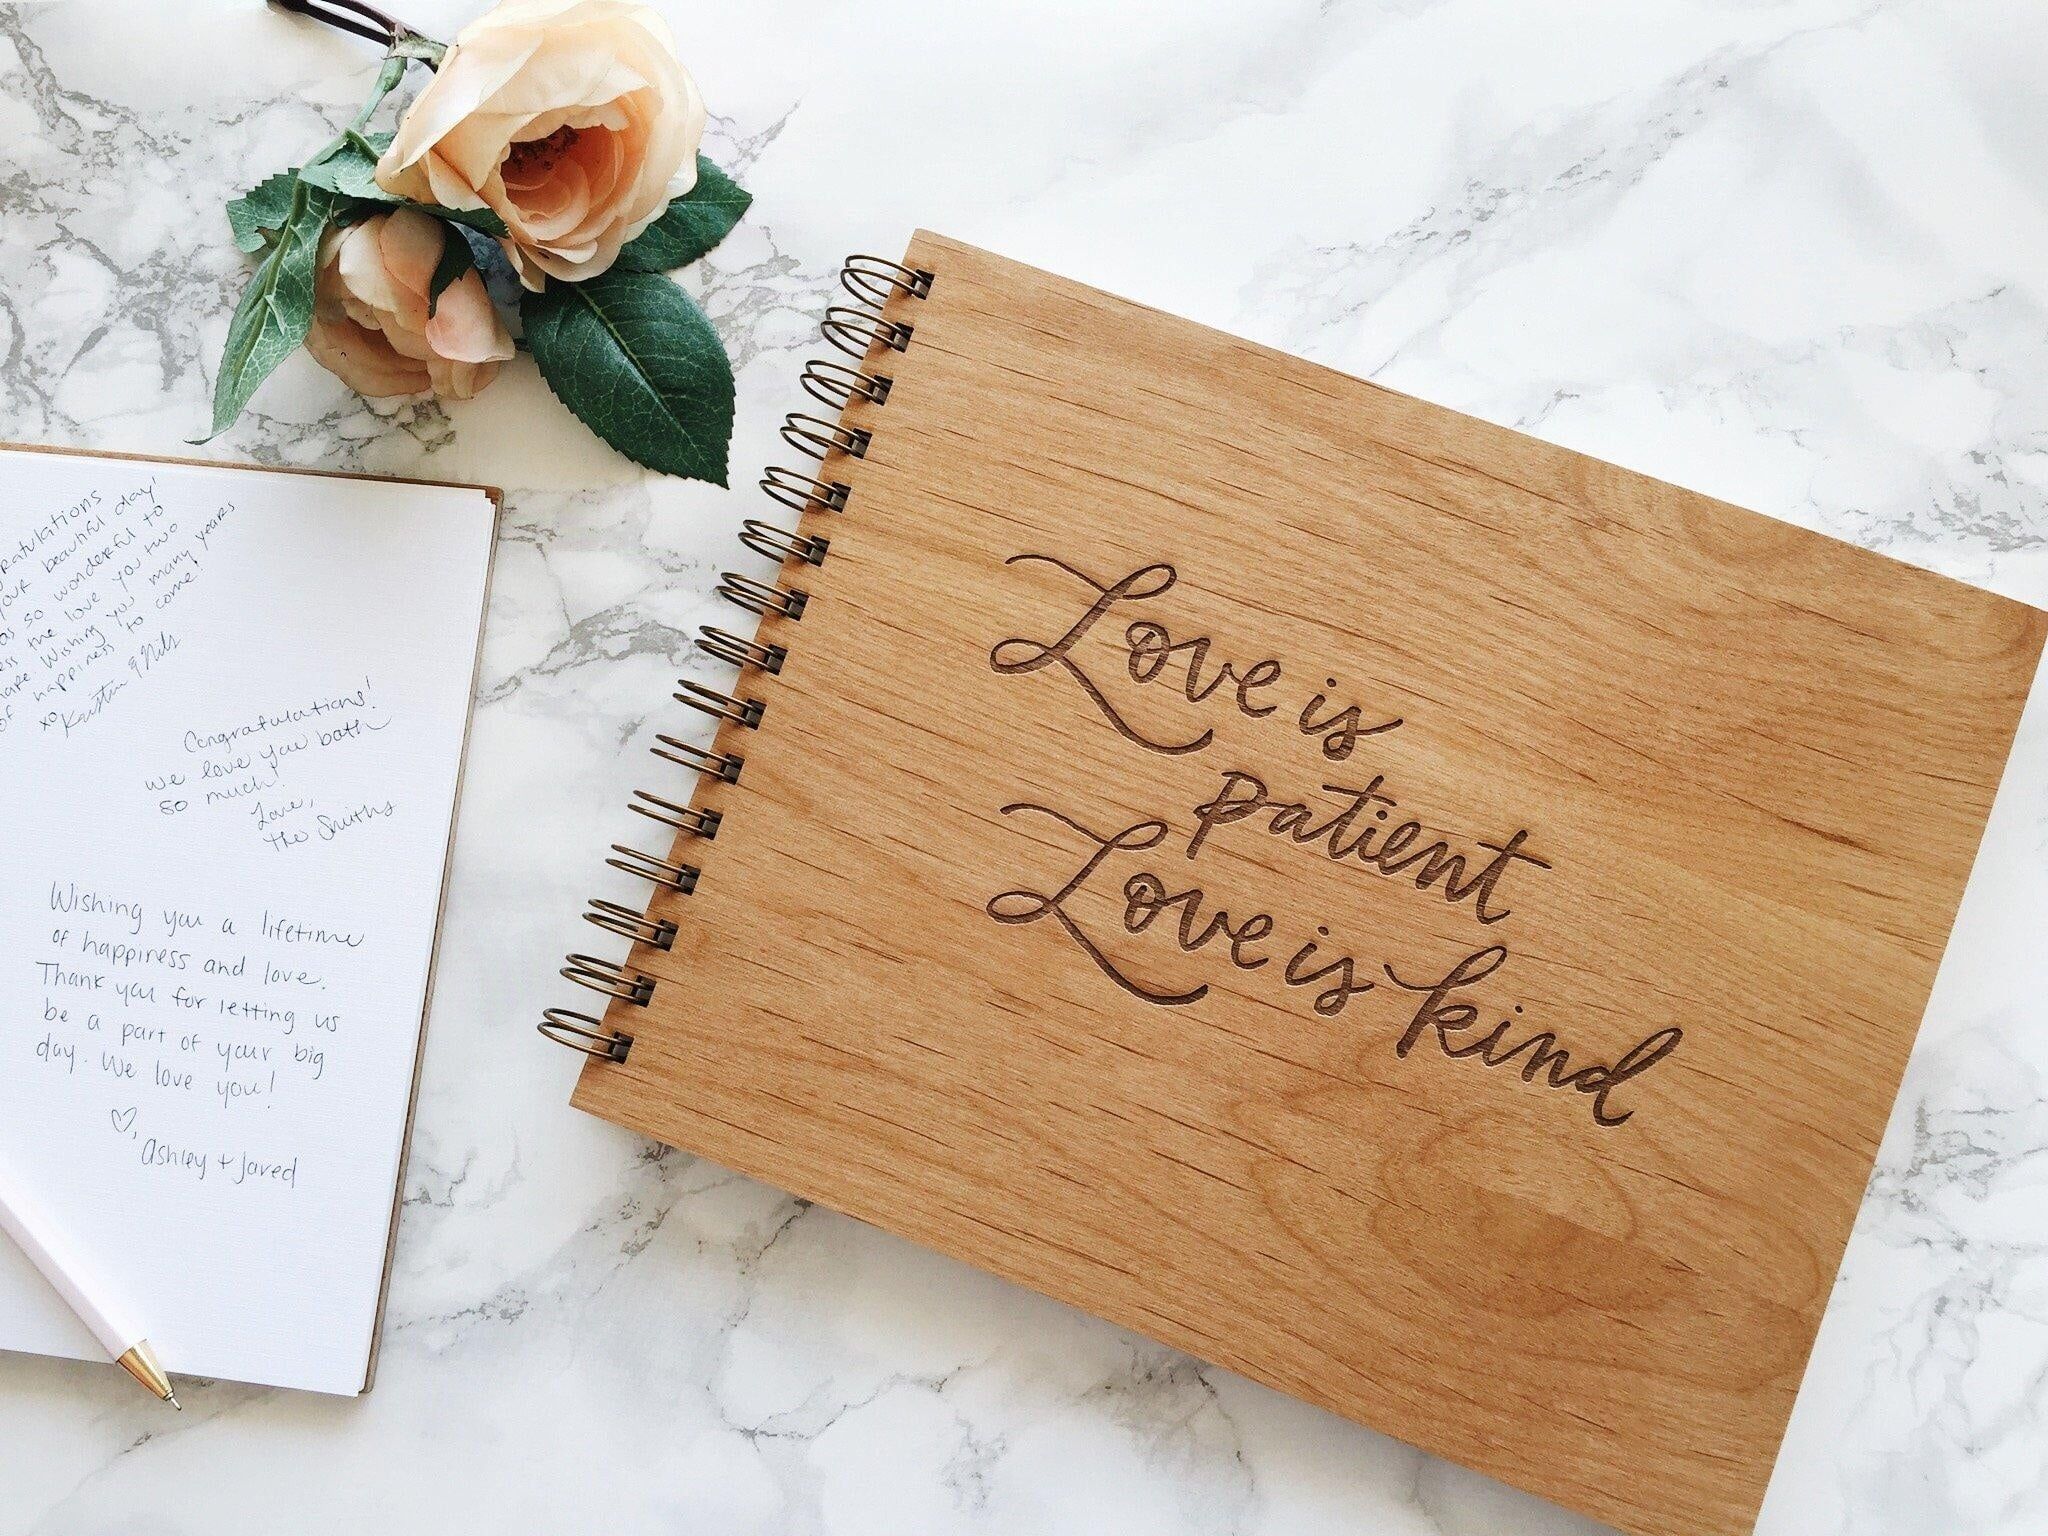 your beautiful day!
so wonderful to
the love you two
Wishing you many years
of happiness to come!
xo
Congratulations!
we love you both
so much!
Love,
the Smiths
Wishing you a lifetime
of happiness and love.
Thank you for letting us
be a part of your big
day. We love you!
♡,
Ashley + Jared
Love is
patient
Love is kind